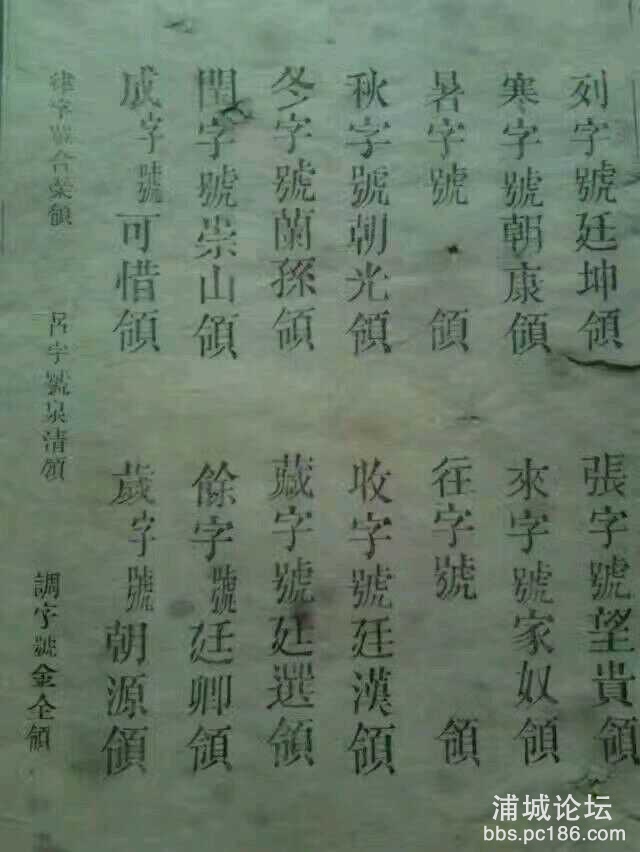 列字號廷坤領
張字號望貴領
寒字號朝康領
來字號家奴領
暑字號 領
往字號 領
秋字號朝光領
收字號廷漢領
冬字號蘭孫領
藏字號廷選領
閏字號崇山領
餘字號廷卿領
成字號可惜領
歲字號朝源領
律字號合榮領
呂字號泉清領
調字號金全領
浦城论坛
bbs.pc186.com